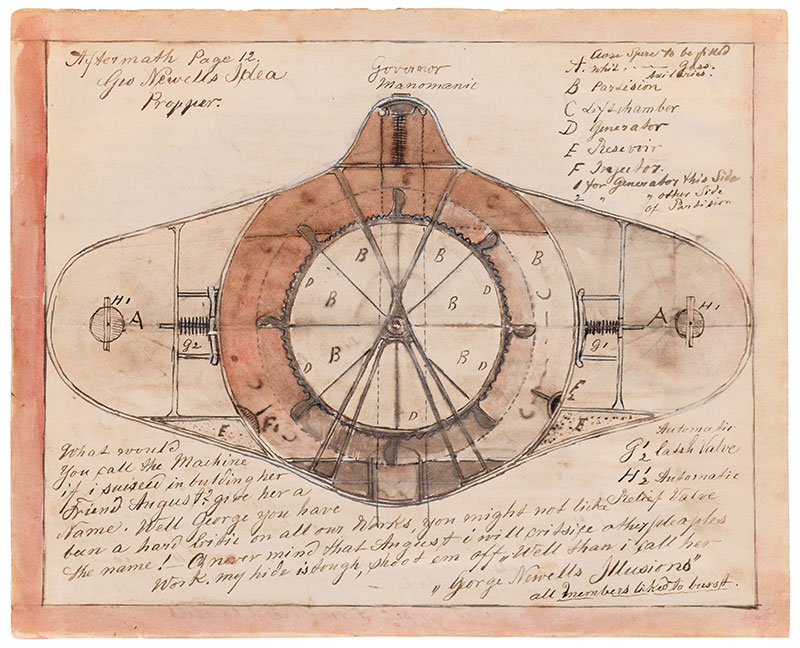 Aftermath Page 12.
Geo Newells Idea
Propper.
Governor
Manomanic
A. to be filled
Gass.
B Partision
C Liftchamber
D Generator
E Resevoir
F Injector.
1 for Generator this Side
2 " " other Side
of Partision
B
B
B
B
B
B
B
D
D
D
D
D
C
C
C
C
H1
A
G2
G1
A
H1
E
F1
F2
E
Automatic
G 1/2 Catsh Valve
H 1/2 Automatic
Relief Valve
What would
You call the Machine
if i suceed in bulding her
Friend August? give her a
Name. Well George you have
ben a hard Critic on all our Works, you might not like
the name!— O never mind that August i will critsise other pleaples
Work, my hide is tough, shoot em off „ Well than i call her
„ George Newells Illusions"
all members liked to bursst.